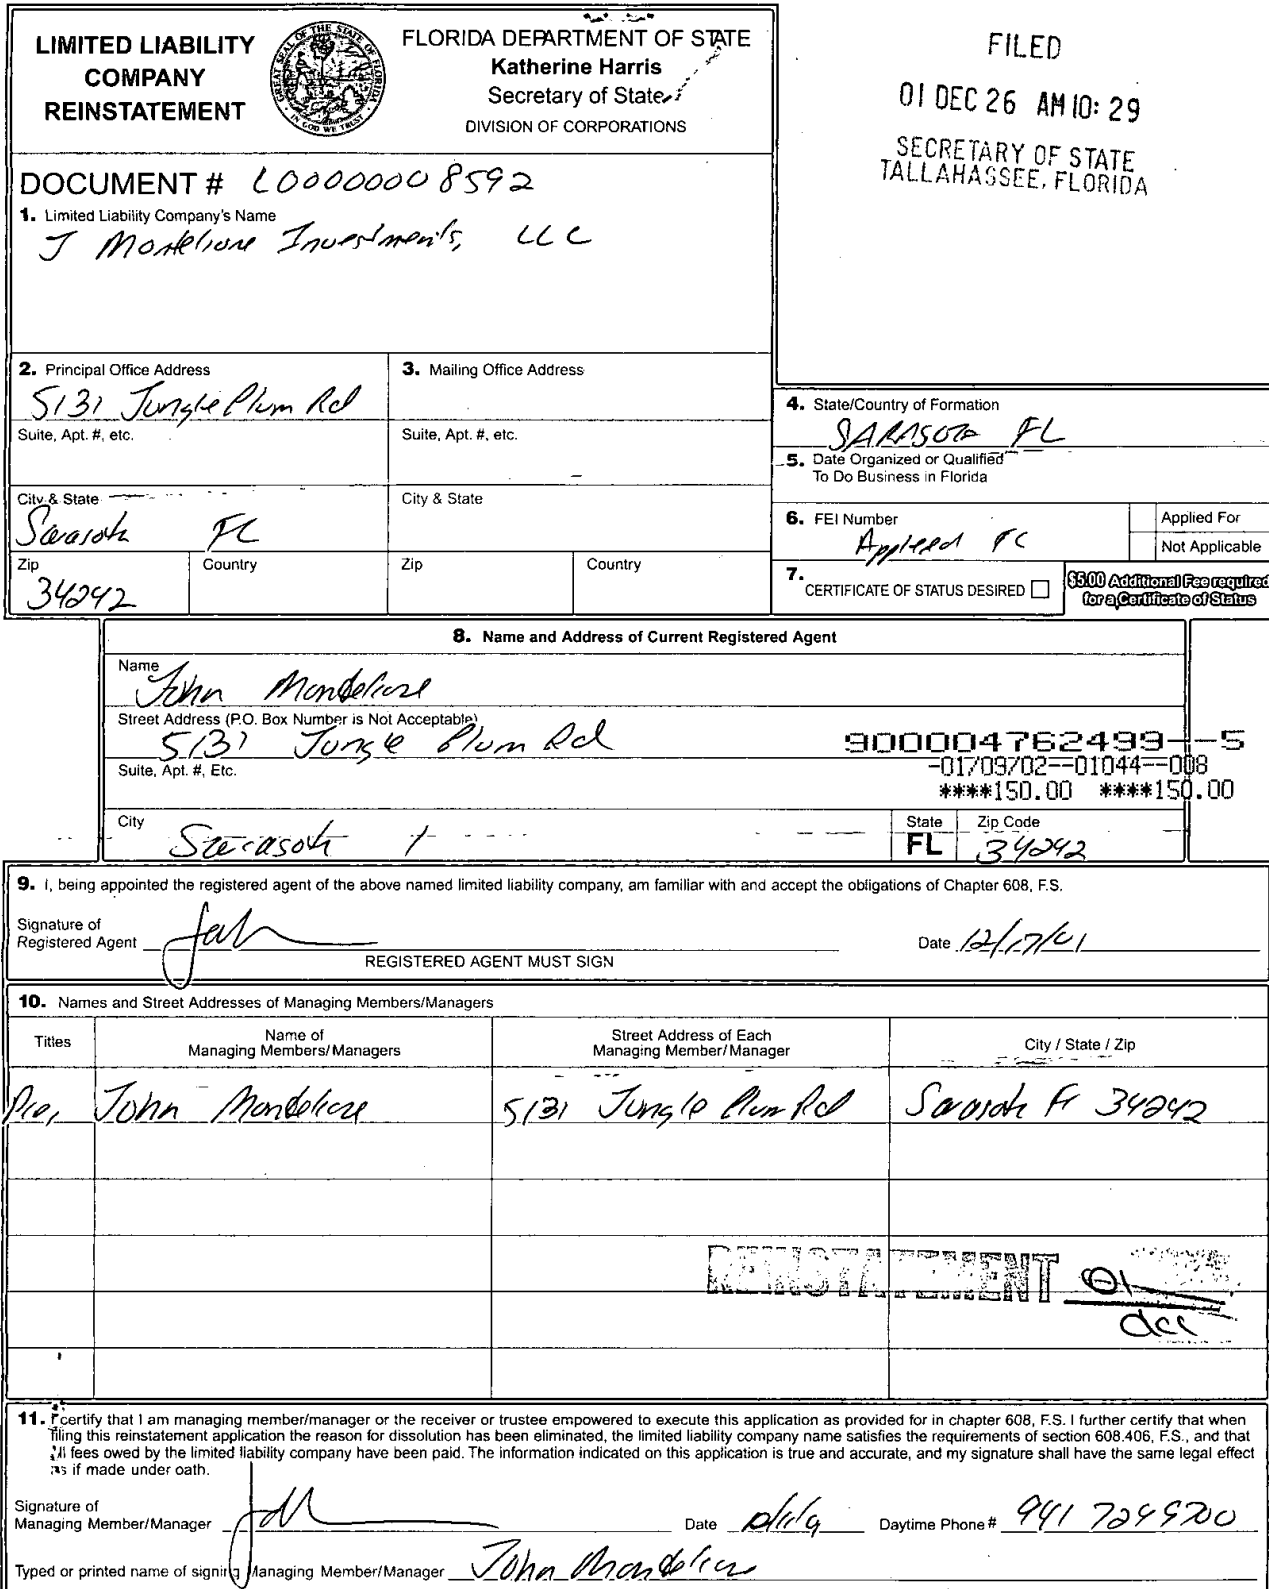 LIMITED LIABILITY
COMPANY
REINSTATEMENT
GREAT SEAL OF THE STATE OF FLORIDA
IN GOD WE TRUST
FLORIDA DEPARTMENT OF STATE
Katherine Harris
Secretary of State
DIVISION OF CORPORATIONS
FILED
01 DEC 26 AM 10:29
SECRETARY OF STATE
TALLAHASSEE, FLORIDA
DOCUMENT # L00000008592
1. Limited Liability Company's Name
J Montelione Investments, LLC
2. Principal Office Address
5131 Jungle Plum Rd
3. Mailing Office Address
Suite, Apt. #, etc.
Suite, Apt. #, etc.
City & State
Sarasota FL
City & State
Zip
34242
Country
Zip
Country
4. State/Country of Formation
SARASOTA FL
5. Date Organized or Qualified
To Do Business in Florida
6. FEI Number
Applied
Applied For
Not Applicable
7. CERTIFICATE OF STATUS DESIRED
$5.00 Additional Fee required
for a Certificate of Status
8. Name and Address of Current Registered Agent
Name
John Montelione
Street Address (P.O. Box Number is Not Acceptable)
5131 Jungle Plum Rd
Suite, Apt. #, Etc.
900004762499--5
-01/09/02--01044--008
****150.00 ****150.00
City
Sarasota
State
FL
Zip Code
34242
9. I, being appointed the registered agent of the above named limited liability company, am familiar with and accept the obligations of Chapter 608, F.S.
Signature of
Registered Agent
Date 12/17/01
REGISTERED AGENT MUST SIGN
10. Names and Street Addresses of Managing Members/Managers
Titles
Name of
Managing Members/Managers
Street Address of Each
Managing Member/Manager
City / State / Zip
John Montelione 5131 Jungle Plum Rd Sarasota Fl 34242
REINSTATEMENT 01
11. I certify that I am managing member/manager or the receiver or trustee empowered to execute this application as provided for in chapter 608, F.S. I further certify that when
filing this reinstatement application the reason for dissolution has been eliminated, the limited liability company name satisfies the requirements of section 608.406, F.S., and that
all fees owed by the limited liability company have been paid. The information indicated on this application is true and accurate, and my signature shall have the same legal effect
as if made under oath.
Signature of
Managing Member/Manager
Date
Daytime Phone #
Typed or printed name of signing Managing Member/Manager John Montelione